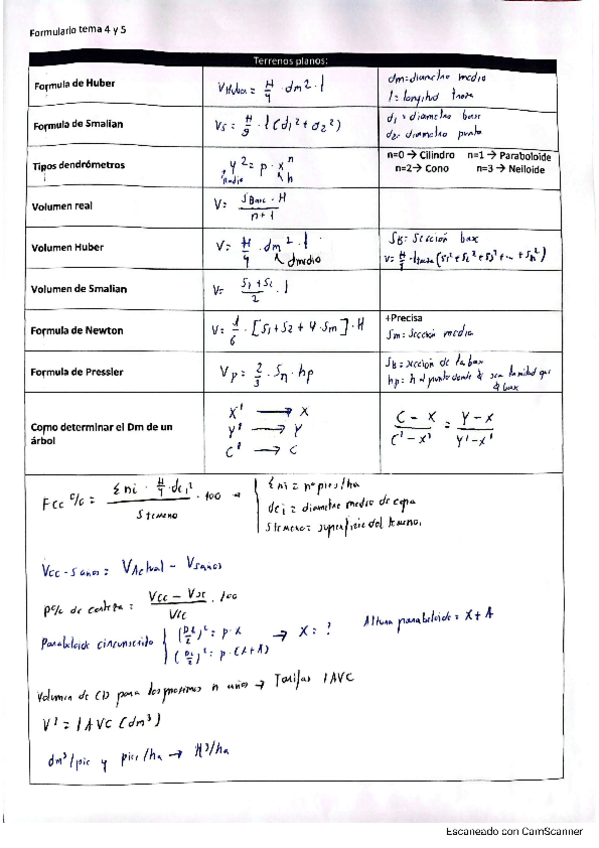 Formulario tema 4 y 5
Terrenos planos:
Formula de Huber
V Huber = π/4 · dm² · l
dm = diametro medio
l = longitud troza
Formula de Smalian
Vs = π/8 · l (d₁² + d₂²)
d₁ = diametro base
d₂ = diametro punta
Tipos dendrómetros
y² = p · xⁿ
Radio h
n=0 → Cilindro n=1 → Paraboloide
n=2 → Cono n=3 → Neiloide
Volumen real
V = SBase · H / n+1
Volumen Huber
V = π/4 · dm² · l
dmedio
SB = Sección base
Volumen de Smalian
V = S₁ + S₂ / 2 · l
Formula de Newton
V = 1/6 · [S₁ + S₂ + 4 · Sm] · H
+Precisa
Sm = Sección media
Formula de Pressler
Vp = 2/3 · Sn · hp
SB = sección de la base
hp = h al punto donde ϕ sea la mitad que
ϕ base
Como determinar el Dm de un
árbol
X' → X
Y' → Y
C' → C
C - X / C' - X' = Y - X / Y' - X'
Fcc % = Σni · π/4 · dci² / Sterreno · 100 →
Σni = nº pies/ha
dci = diametro medio de copa
Sterreno = superficie del terreno.
Vcc - 5 años = VActual - V5años
p% de corteza = Vcc - Vsc / Vcc · 100
Paraboloide circunscrito
= p · X
= p · (X+A)
→ X = ?
Altura paraboloide = X + A
Volumen de para los proximos n años → Tarifas IAVC
V' = IAVC (dm³)
dm³/pie y pies/ha → M³/ha
Escaneado con CamScanner